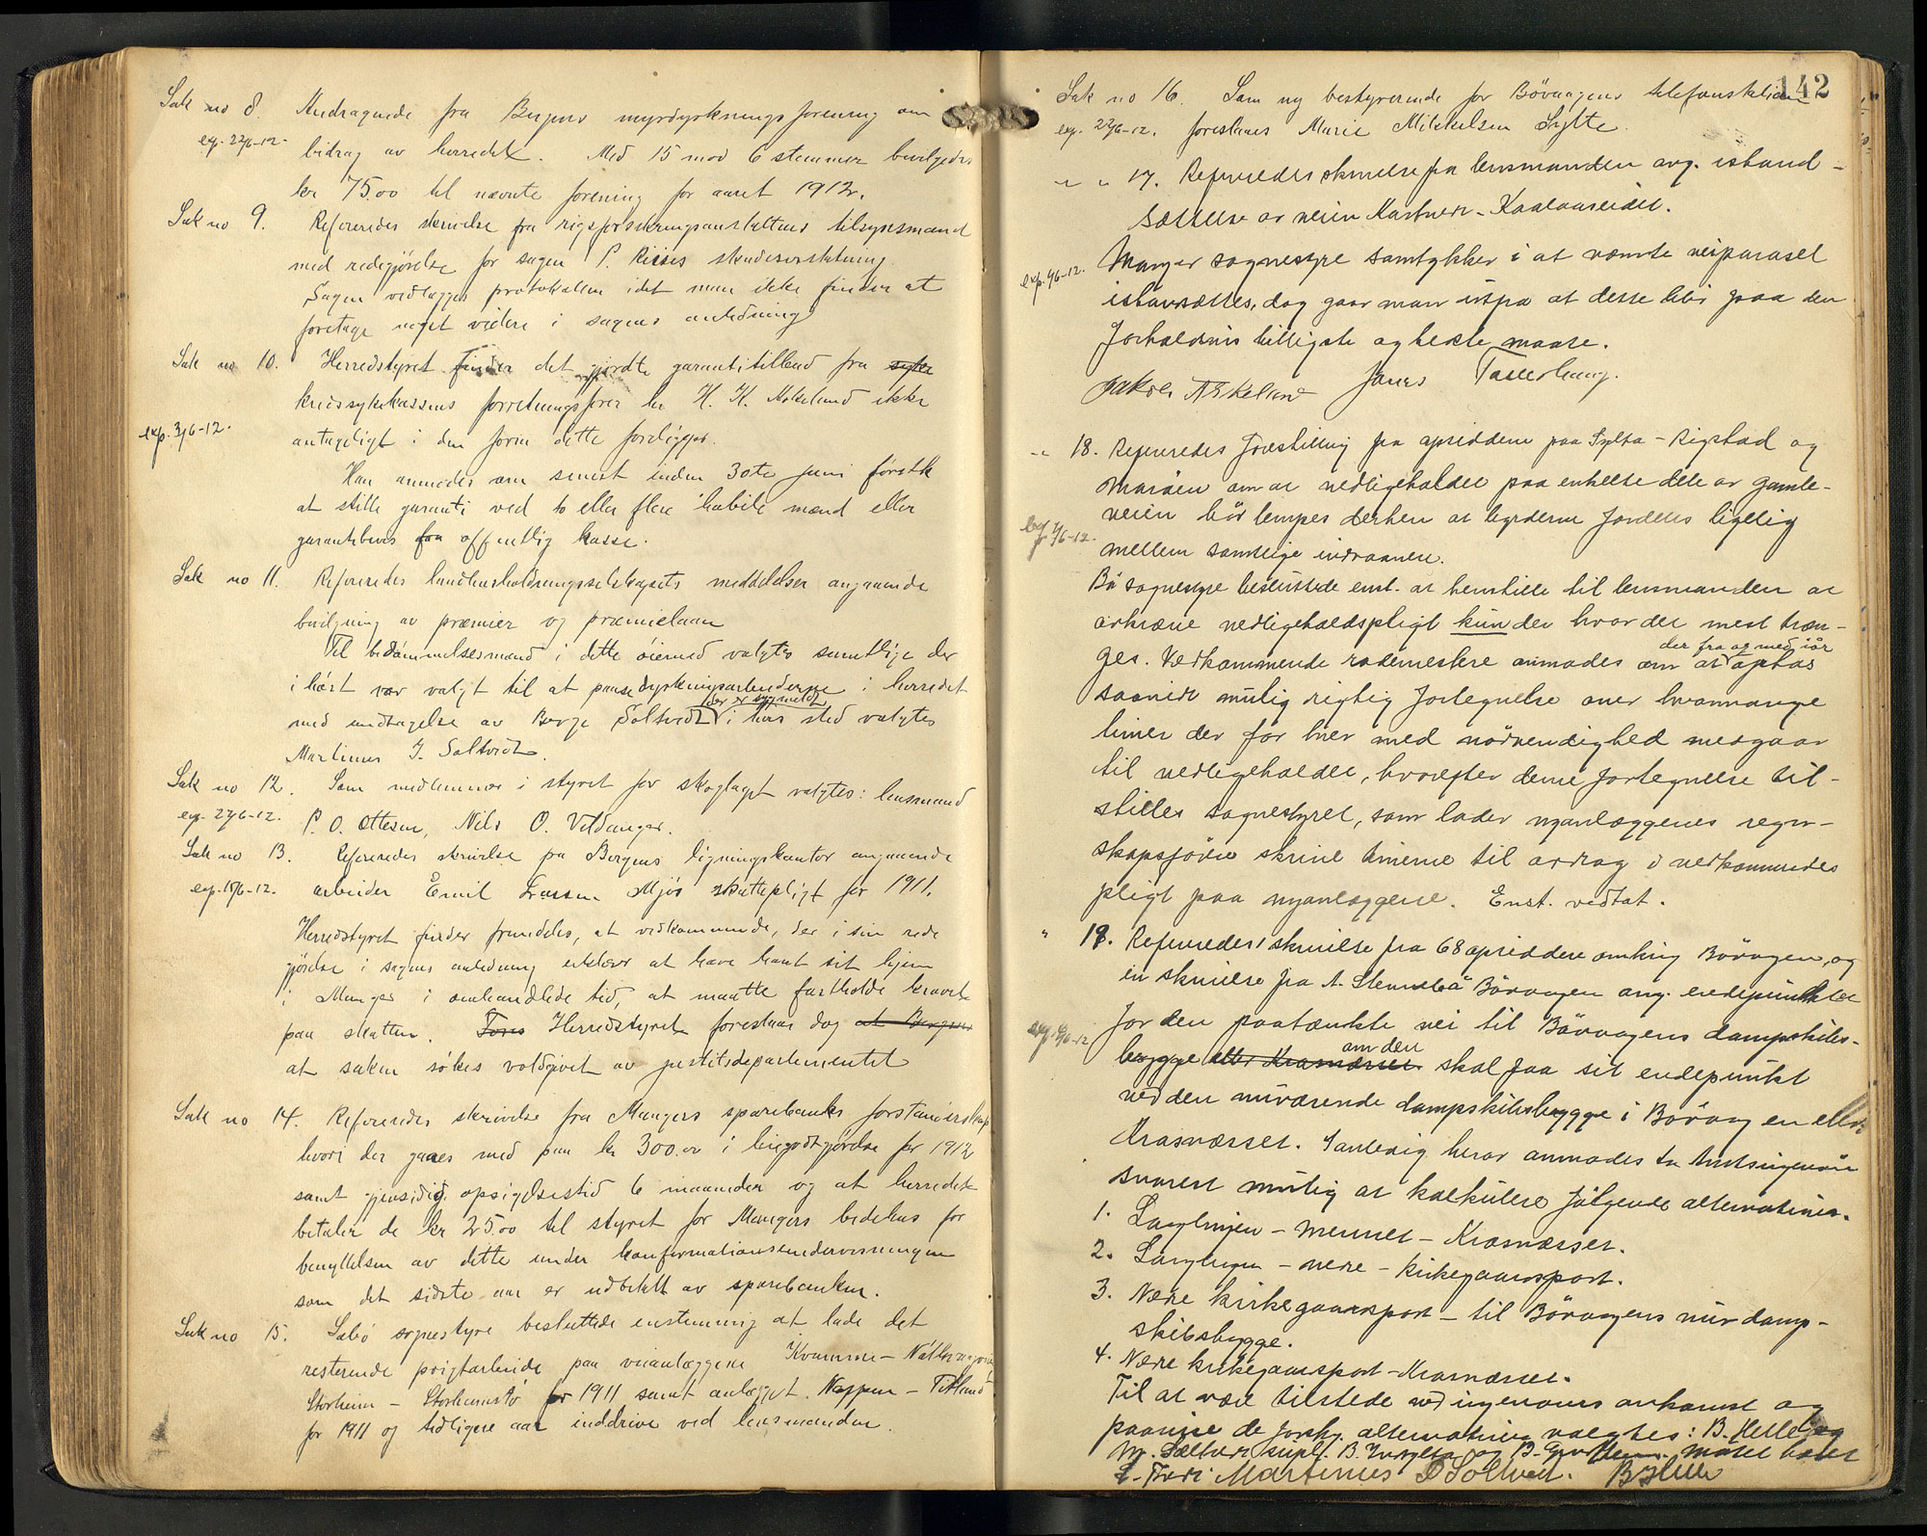 Sak no 8. Andragende fra Bergens myrdyrkningsforening om
exp. 22/6-12. bidrag av herredet. Med 15 mod 6 stemmer bevilgedes
kr 75.00 til nævnte forening for aaret 1912.
Sak no 9. Refereredes skrivelse fra rigsforsikringsanstaltens tilsynsmand
med redegjørelse for sagen P. Riisis skadeserstatning.
Sagen vedlægges protokollen idet man ikke finder at
foretage noget videre i sagens anledning
Sak no 10. Herredstyret finder det gjorte garantitilbud fra syke
kredssykekassens forretningsfører hr H. H. Askeland ikke
exp. 3/6-12. antageligt i den form dette foreligger.
Han anmodes om senest inden 30te juni førstk
at stille garanti ved to eller flere habile mænd eller
garantibevis fra offentlig kasse.
Sak no 11. Refereredes landhusholdningsselskapets meddelelser angaaende
bevilgning av præmier og præmielaan
Til bedømmelsesmænd i dette øiemed valgtes samtlige der
i høst var valgt til at paase dyrkningsarbeiderne i herredet
der er sygmeldt
med undtagelse av Berge Soltvedt i hvis sted valgtes
Martinus J. Soltvedt.
Sak no 12. Som medlemmer i styret for skoglaget valgtes: lensmand
exp. 27/6-12. P. O. Ottesen, Nils O. Vetaanger.
Sak no 13. Refereredes skrivelse fra Bergens ligningskontor angaaende
exp. 15/6-12. arbeider Emil Larsen Mjøs skattepligt for 1911.
Herredstyret finder fremdeles, at vedkommende, der i sin rede
gjørelse i sagens anledning erklærer at have havt sit hjem
i Manger i omhandlede tid, at maatte fastholde kravet
paa skatten. Fores Herredstyret foreslaar dog at Bergens
at saken søkes voldgivet av justitsdepartementet
Sak no 14. Refereredes skrivelse fra Mangers sparebanks forstanderskap
hvori der gaaes med paa kr 300.00 i leiegodtgjørelse for 1912
samt gjensidig opsigelsestid 6 maaneder og at herredet
betaler de kr 25.00 til styret for Mangers bedehus for
benyttelsen av dette under konfirmationsundervisningen
som det sidste aar er udbetalt av sparebanken.
Sak no 15. Sæbø sognestyre besluttede enstemmig at lade det
resterende pligtarbeide paa veianlæggene Kvamme –
Storheim – Storheimstø for 1911 samt anlægget Noppen – Titland
for 1911 og tidligere aar inddrive ved lensmanden.
142
Sak no 16. Som ny bestyrerinde for Bövaagens telefonstation
exp. 22/6-12. foreslaaes Marie Mikkelsen Sylte.
" " 17. Refereredes skrivelse fra lensmanden ang. istand-
sættelse av veien Kartveit – Kaalaaseidet.
exp. 4/6-12. Manger sognestyre samtykker i at nævnte veiparasel
istandsættes, dog gaar man utfra at dette blir paa den
forholdsvis billigste og bedste maate.
Jakob Askeland Jones Tasterhaug.
" 18. Refereredes forestilling fra opsiddere paa Sylta – Rigstad og
Maröen om at vedligeholdet paa enkelte dele av gamle-
exp 4/6-12. veien bör lempes derhen at byrderne fordeles ligelig
mellem samtlige indvaanere.
Bö sognestyre besluttede enst. at henstille til lensmanden at
avkræve vedligeholdspligt kun der hvor det mest træn-
der fra og med iår
ges. Vedkommende rodemestere anmodes om at optas
saavidt mulig rigtig fortegnelse over hvormange
timer der for hver med nödvendighed medgaar
til vedligeholdet, hvorefter denne fortegnelse til-
stilles sognestyret, som lader nyanlæggenes regn-
skapsförer skrive timerne til avdrag i vedkommendes
pligt paa nyanlæggene. Enst. vedtat.
" 19. Refereredes skrivelse fra 68 opsiddere omkring Bövagen, og
en skrivelse fra A. Stensebö Bövaagen ang. endepunktet
exp. 4/6-12 for den paatænkte vei til Bövaagens dampskibs-
om den
brygge eller Krasnæsset skal faa sit endepunkt
ved den nuværende dampskibsbrygge i Bövaagen eller
Krasnæsset. I anledning herav anmodes hr Amtsingeniör
snarest mulig at kalkulere fölgende alternativer.
1. Langlinjen – Mennet – Krasnæsset.
2. Langlinjen – nedre – kirkegaardsport.
3. Nedre kirkegaardsport – til Bövagens nuv damp-
skibsbrygge.
4. Nedre kirkegaardsport – Krasnæsset.
Til at være tilstede ved ingeniörens ankomst og
paavise de forskj. alternativer valgtes: B. Helle og
M. Soltvedt supl. B. Indsylta og B. Grovlien. Mötet hævet
L. Fredi Martinus D Soltvedt. B Helle